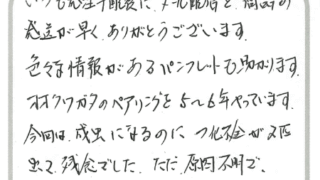 発送が早く、ありがとうございます。
色々な情報があるパンフレットも助かります。
オオクワガタのペアリングを5〜6年やっています。
今回は、成虫になるのに 不全が 2匹
出て、残念でした。ただ、原因不明で、